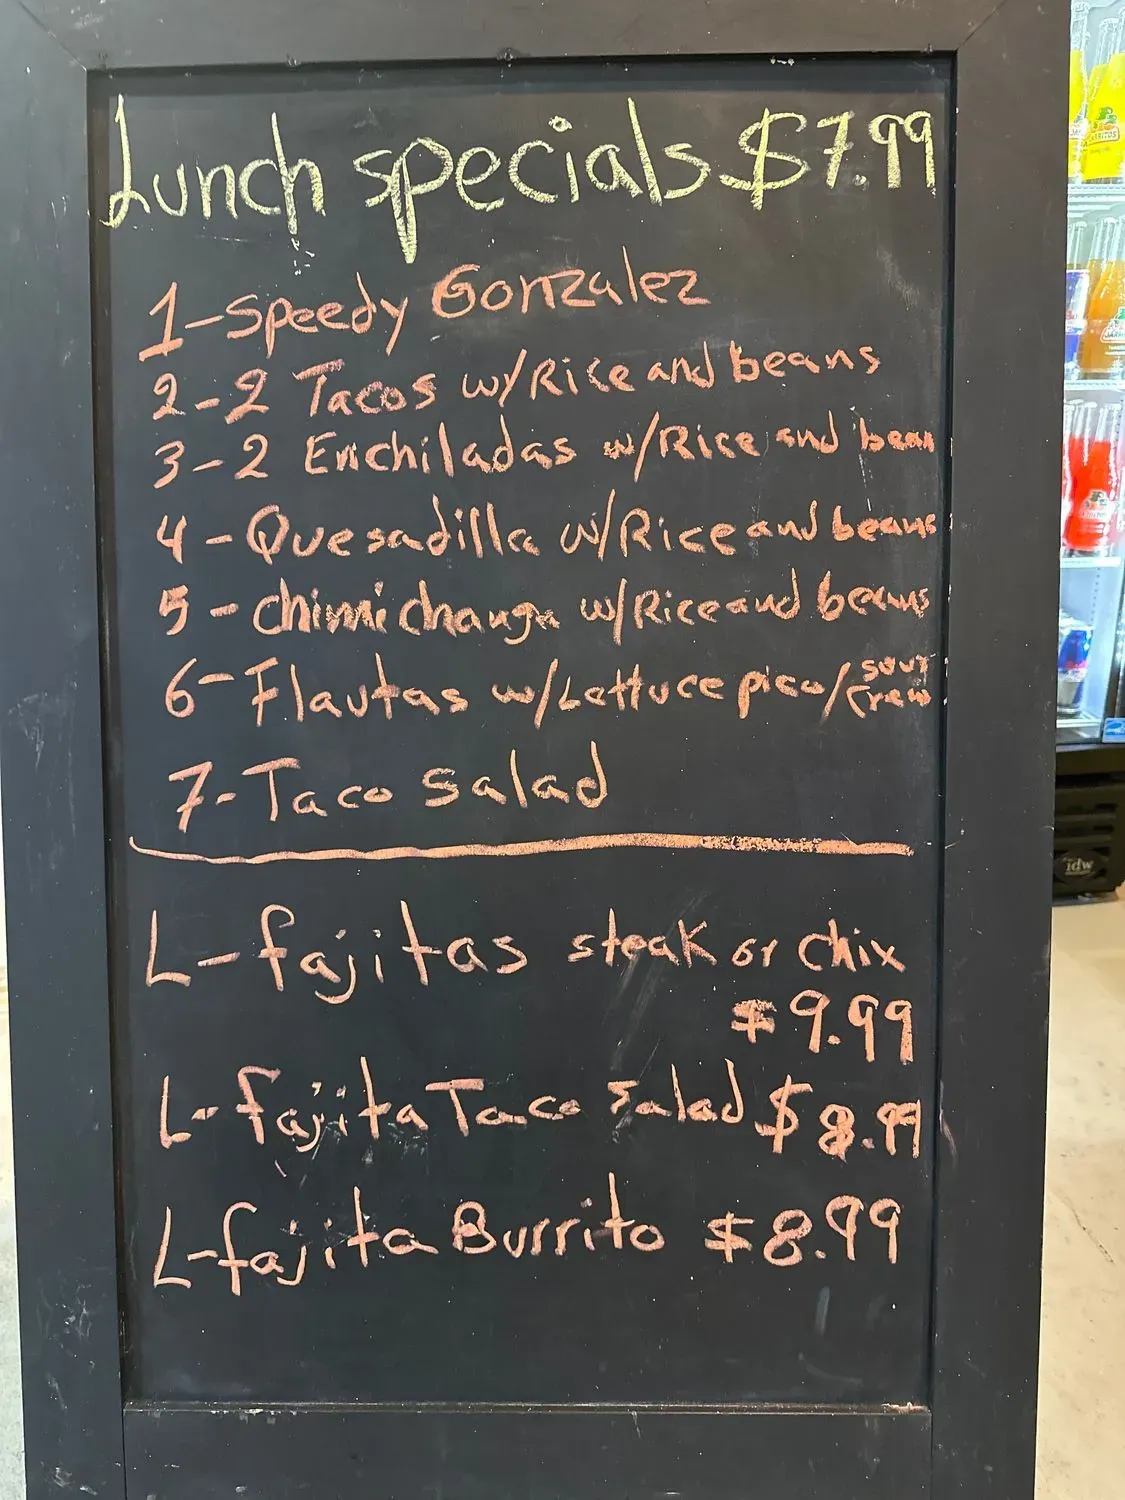 Lunch specials $7.99
1-Speedy Gonzalez
2-2 Tacos w/Rice and beans
3-2 Enchiladas w/Rice and bean
4-Quesadilla w/Rice and beans
5-chimichanga w/Rice and beans
6-Flautas w/Lettuce pico/sour cream
7-Taco salad
L-fajitas steak or chix
$9.99
L-fajita Taco salad $8.99
L-fajita Burrito $8.99
idw